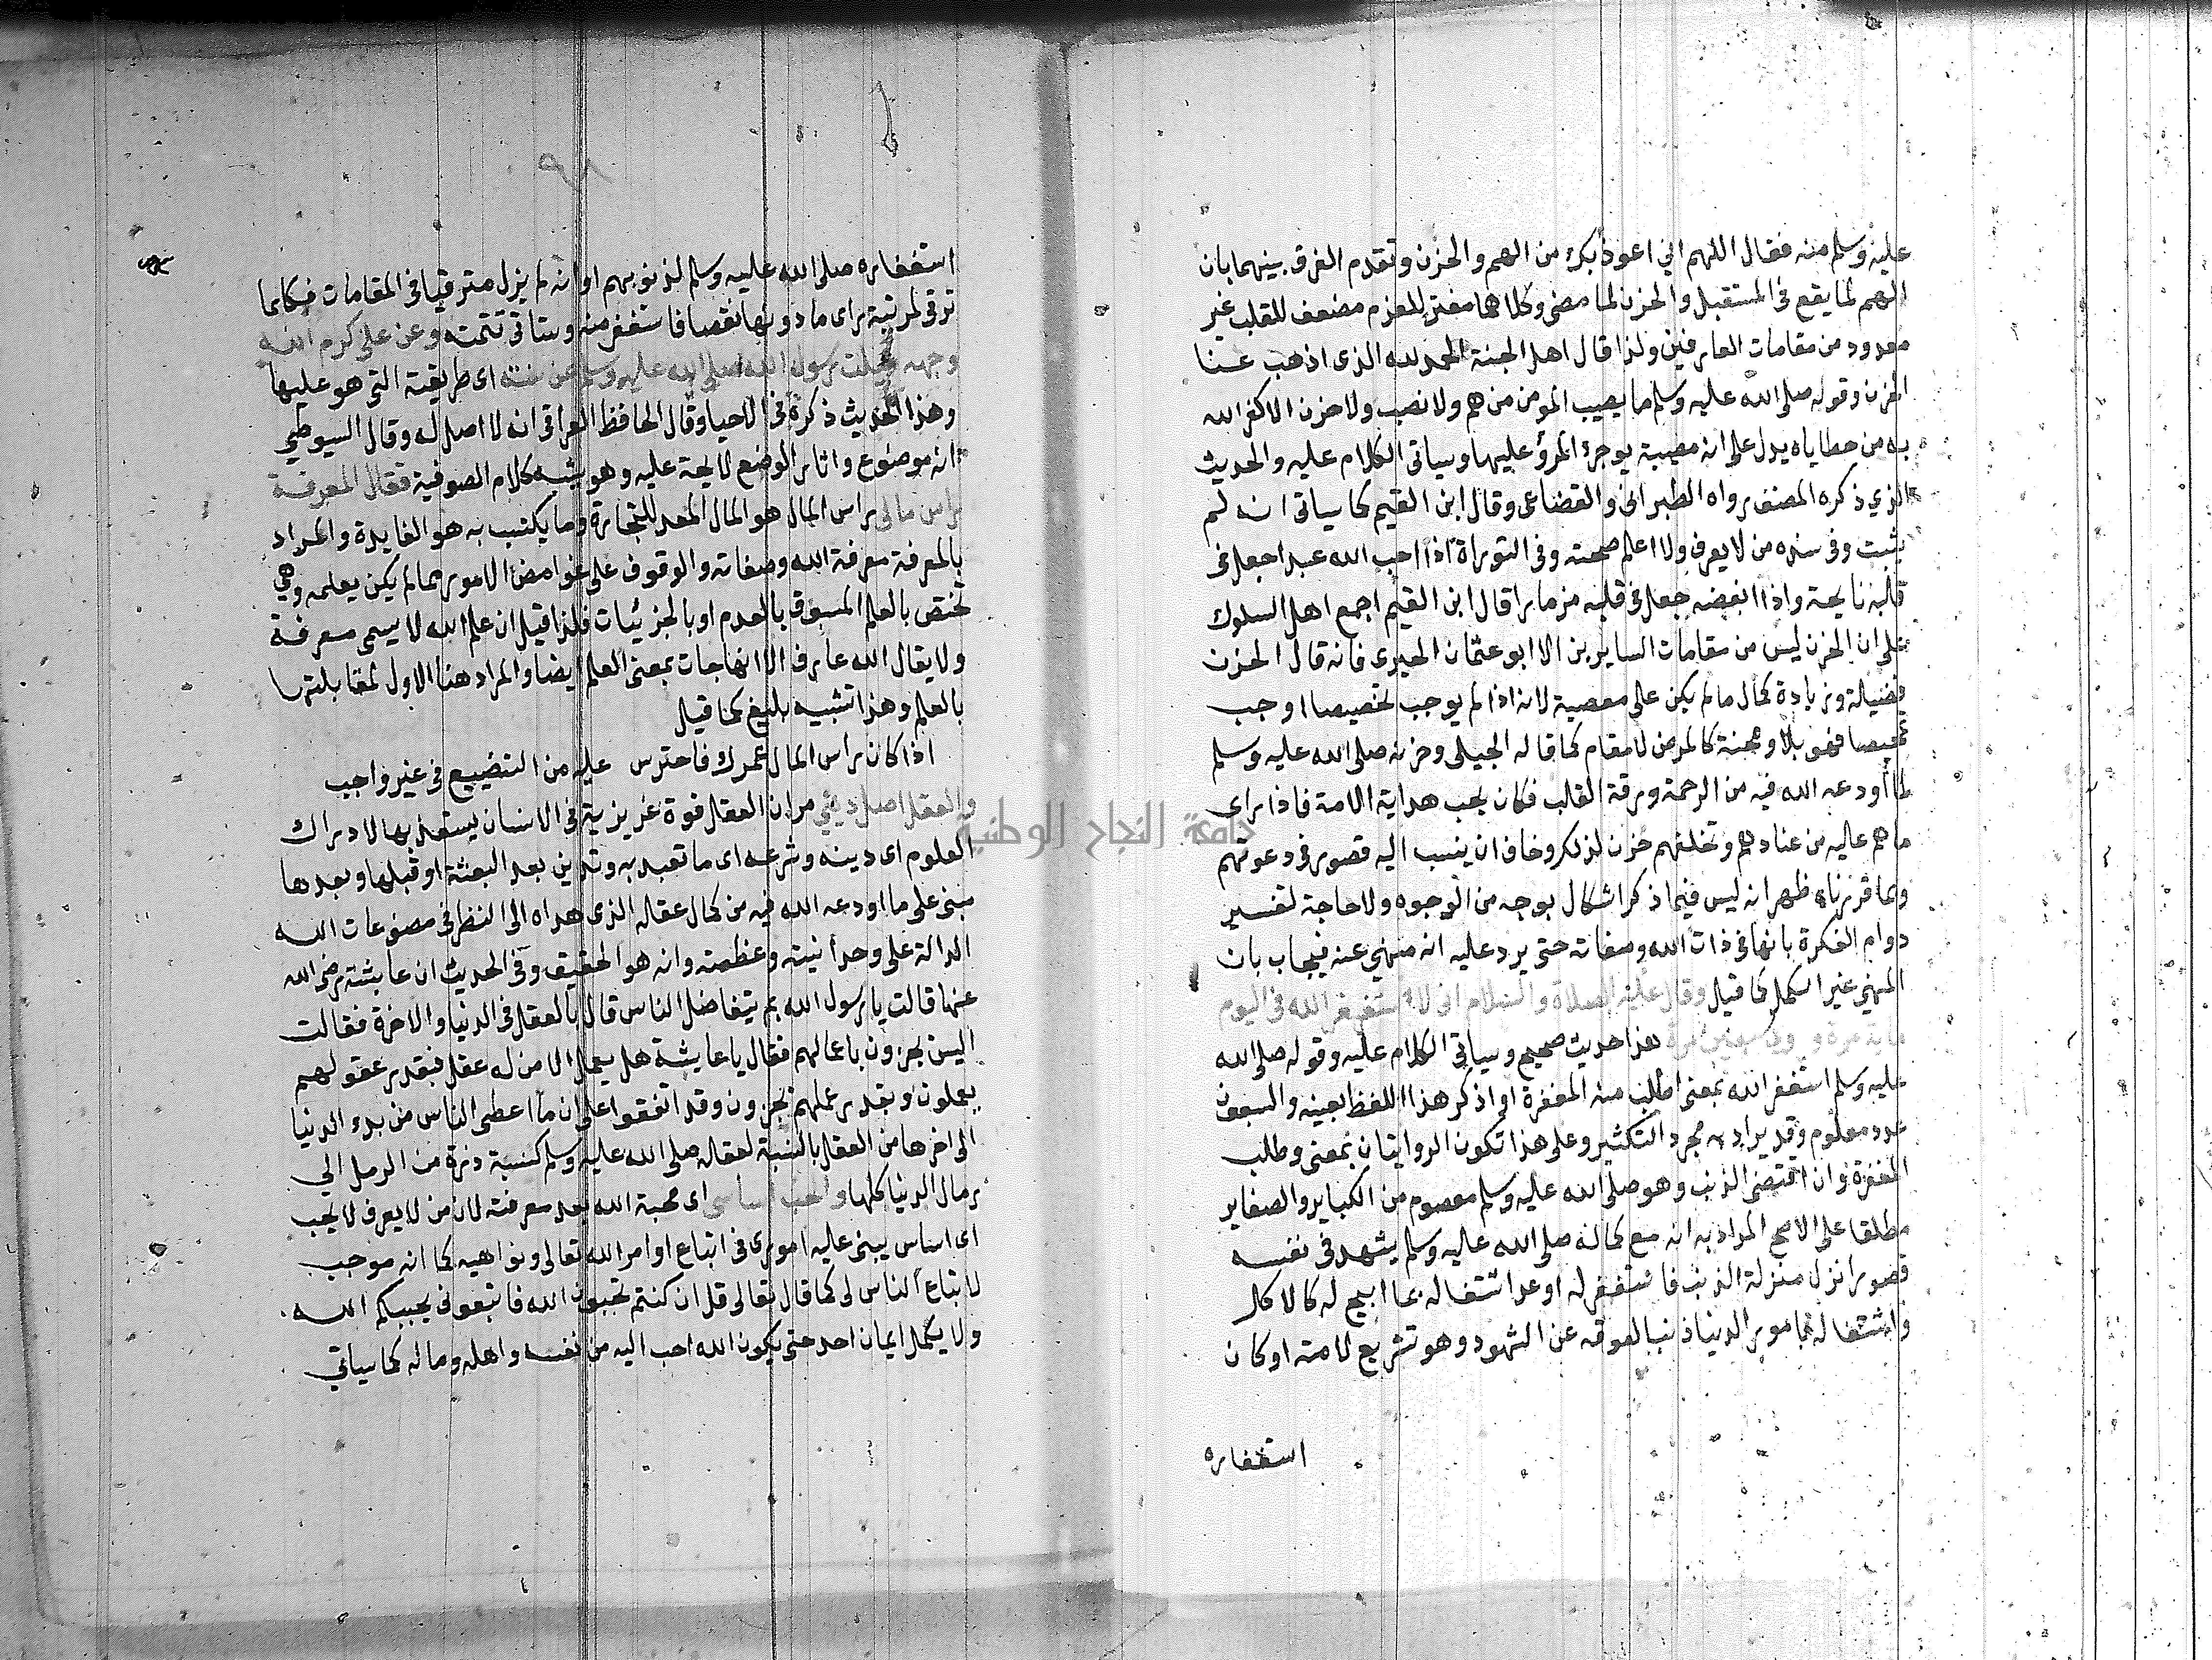 عليه وسلم منه فقال اللهم اني اعوذ بك من الهم والحزن وتقدم الفرق بينهما بان
الهم لما يقع في المستقبل والحزن لما مضى وكلاهما مفتر للعزم مضعف للقلب غير
معدود من مقامات العارفين ولذا قال اهل الجنة الحمد لله الذى اذهب عنا
الحزن وقوله صلى الله عليه وسلم ما يصيب المومن من هم ولا نصب ولا حزن الا كفر الله
به من خطاياه يدل على انه مصيبة يوجر المرؤ عليها وسياتى الكلام عليه والحديث
الذي ذكره المصنف رواه الطبرانى والقضاعى وقال ابن القيم كما سياتى انه لم
يثبت وفى سنده من لا يعرف ولا اعلم صحته وفى التوراة اذا احب الله عبدا جعل فى
قلبه نايحة واذا ابغضه جعل فى قلبه مزمارا قال ابن القيم اجمع اهل السلوك
على ان الحزن ليس من مقامات السايرين الا ابو عثمان الحيرى فانه قال الحزن
فضيلة وزيادة كمال مالم يكن على معصية لانه اذا لم يوجب تخصيصا اوجب
تمحيصا فهو بلا ومحنة كالمرض لا مقام كما قاله الجيلى وحزنه صلى الله عليه وسلم
لما أودعه الله فيه من الرحمة ورقة القلب فكان يحب هداية الامة فاذا راى
ما هم عليه من عنادهم وتخلفهم حزن لذلك وخاف ان ينسب اليه قصور فى دعوتهم
وبما قررناه ظهر انه ليس فيما ذكر اشكال بوجه من الوجوه ولا حاجة لتفسير
دوام الفكرة بانها فى ذات الله وصفاته حتى يرد عليه انه منهي عنه فيجاب بان
المنهى غير الكمل كما قيل وقال عليه الصلاة والسلام انى لاستغفر الله فى اليوم
ماية مرة و سبعين مرة هذا حديث صحيح وسياتى الكلام عليه وقوله صلى الله
عليه وسلم استغفر الله بمعنى اطلب منه المغفرة او اذكر هذا اللفظ بعينه والسبعون
عدد معلوم وقد يراد به مجرد التكثير وعلى هذا تكون الروايتان بمعنى وطلب
المغفرة وان اقتضى الذنب وهو صلى الله عليه وسلم معصوم من الكباير والصغاير
مطلقا على الاصح المراد به انه مع كماله صلى الله عليه وسلم يشهد فى نفسه
قصورا نزل منزلة الذنب فاستغفر له او عد اشتغاله بما ابيح له كالاكل
واشتغاله بامور الدنيا ذنبا لعوقه عن الشهود وهو تشريع لامته او كان
استغفاره
٩٨
استغفاره صلى الله عليه وسلم لذنوبهم او انه لم يزل مترقيا فى المقامات فكلما
ترقى لمرتبة راى ما دونها نقصا فاستغفر منه وستاتى تتمته وعن على كرم الله
وجهه سالت رسول الله صلى الله عليه وسلم عن سنته اى طريقته التى هو عليها
وهذا الحديث ذكره فى الاحيا وقال الحافظ العراقى انه لا اصل له وقال السيوطي
انه موضوع واثار الوضع لايحة عليه وهو يشبه كلام الصوفية فقال المعرفة
راس مالى راس المال هو المال المعد للتجارة وما يكتسب به هو الفايدة والمراد
بالمعرفة معرفة الله وصفاته والوقوف على غوامض الامور مما لم يكن يعلمه وهي
تختص بالعلم المسبوق بالعدم او بالجزئيات فلذا قيل ان علم الله لا يسمى معرفة
ولا يقال الله عارف الا انها جات بمعنى العلم ايضا والمراد هنا الاول لمقابلتها
بالعلم وهذا تشبيه بليغ كما قيل
اذا كان راس المال عمرك فاحترس عليه من التضييع فى غير واجب
والعقل اصل دينى مر ان العقل قوة غريزية فى الانسان يستعد بها لادراك
العلوم اى دينه وشرعه اى ما تعبد به وتدين بعد البعثة او قبلها وبعدها
مبنى على ما اودعه الله فيه من كمال عقله الذى هداه الى النظر فى مصنوعات الله
الدالة على وحدانيته وعظمته وانه هو الحقيق وفى الحديث ان عايشة رضى الله
عنها قالت يا رسول الله بم يتفاضل الناس قال بالعقل فى الدنيا والاخرة فقالت
اليس يجزون باعمالهم فقال يا عايشة هل يعمل الا من له عقل فبقدر عقولهم
يعملون وبقدر عملهم يجزون وقد اتفقوا على ان ما اعطى الناس من بدء الدنيا
الى اخرها من العقل بالنسبة لعقله صلى الله عليه وسلم كنسبة ذرة من الرمل الي
رمال الدنيا كلها والحب اساسى اى محبة الله بعد معرفته لان من لا يعرف لا يحب
اى اساس يبنى عليه امورى فى اتباع اوامر الله تعالى ونواهيه كما انه موجب
لاتباع الناس لى كما قال تعالى قل ان كنتم تحبون الله فاتبعونى يحببكم الله
ولا يكمل ايمان احد حتى يكون الله احب اليه من نفسه واهله وماله كما سياتي
جامعة النجاح الوطنية